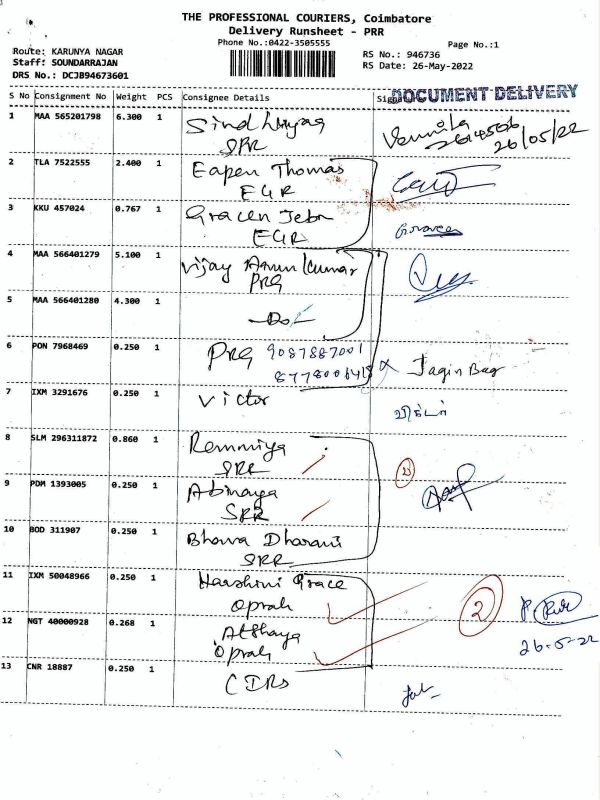 THE PROFESSIONAL COURIERS, Coimbatore
Delivery Runsheet - PRR
Phone No.:0422-3505555
Page No.:1
Route: KARUNYA NAGAR
Staff: SOUNDARRAJAN
DRS No.: DCJB94673601
RS No.: 946736
RS Date: 26-May-2022
S No Consignment No Weight PCS Consignee Details Signa
DOCUMENT DELIVERY
1 MAA 565201798 6.300 1
SRR
Vennila
26/05/22
2 TLA 7522555 2.400 1 Eapen Thomas
EGR
3 KKU 457024 0.767 1 Gracen Jebn
EGR
4 MAA 566401279 5.100 1 Vijay Arun Kumar
PRG
5 MAA 566401280 4.300 1 -Do-
6 PON 7968469 0.250 1 PRG 9087887001
Jagin Bag
7 IXM 3291676 0.250 1 Victor
விக்டர்
8 SLM 296311872 0.860 1 Remmiya
SRR
9 PDM 1393005 0.250 1 Abinaya
SRR
10 BOD 311907 0.250 1 Bhava Dharani
SRR
11 IXM 50048966 0.250 1 Harshini Grace
Oprah
2
12 NGT 40000928 0.268 1 Atshaya
Oprah
26-5-22
13 CNR 18887 0.250 1 CIRs